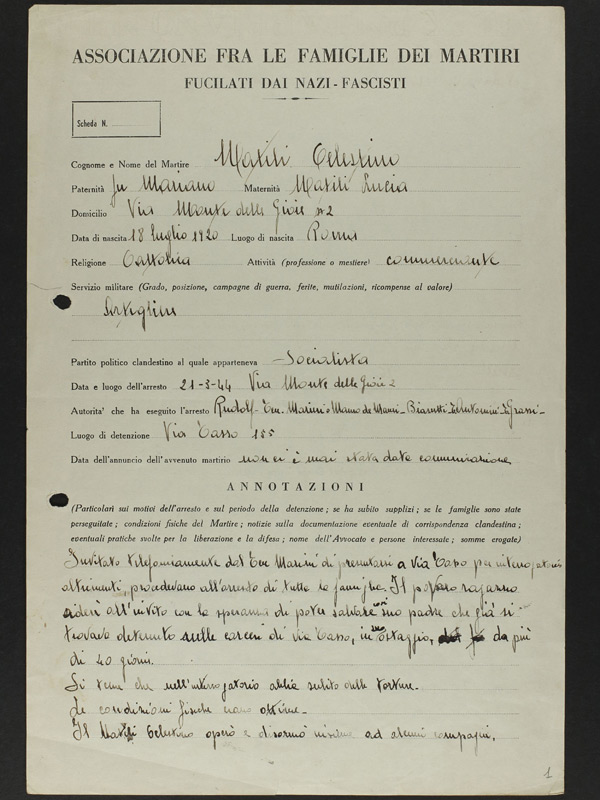 ASSOCIAZIONE FRA LE FAMIGLIE DEI MARTIRI
FUCILATI DAI NAZI-FASCISTI
Scheda N.
Cognome e Nome del Martire Matili Celestino
Paternità fu Mariano Maternità Matili Lucia
Domicilio Via Monte delle Gioie n 2
Data di nascita 18 luglio 1920 Luogo di nascita Roma
Religione Cattolica Attività (professione o mestiere) commerciante
Servizio militare (Grado, posizione, campagne di guerra, ferite, mutilazioni, ricompense al valore)
Artigliere
Partito politico clandestino al quale apparteneva Socialista
Data e luogo dell'arresto 21-3-44 Via Monte delle Gioie 2
Autorita' che ha eseguito l'arresto Rudolf - Ten. Marini o
Luogo di detenzione Via Tasso 155
Data dell'annuncio dell'avvenuto martirio non ci è mai stata data comunicazione
ANNOTAZIONI
(Particolari sui motivi dell'arresto e sul periodo della detenzione; se ha subito supplizi; se le famiglie sono state
perseguitate; condizioni fisiche del Martire; notizie sulla documentazione eventuale di corrispondenza clandestina;
eventuali pratiche svolte per la liberazione e la difesa; nome dell'Avvocato e persone interessate; somme erogate)
Invitato telefonicamente dal Ten Marini di presentarsi a Via Tasso per interrogatorio
altrimenti, procedevano all'arresto di tutta la famiglia. Il povero ragazzo
aderì all'invito con la speranza di poter salvare così suo padre che già si
trovava detenuto nelle carceri di Via Tasso, in ostaggio, da più
di 40 giorni.
Si teme che nell'interrogatorio abbia subito delle torture.
Le condizioni fisiche erano ottime.
Il Matili Celestino operò e disarmò insieme ad alcuni compagni.
1